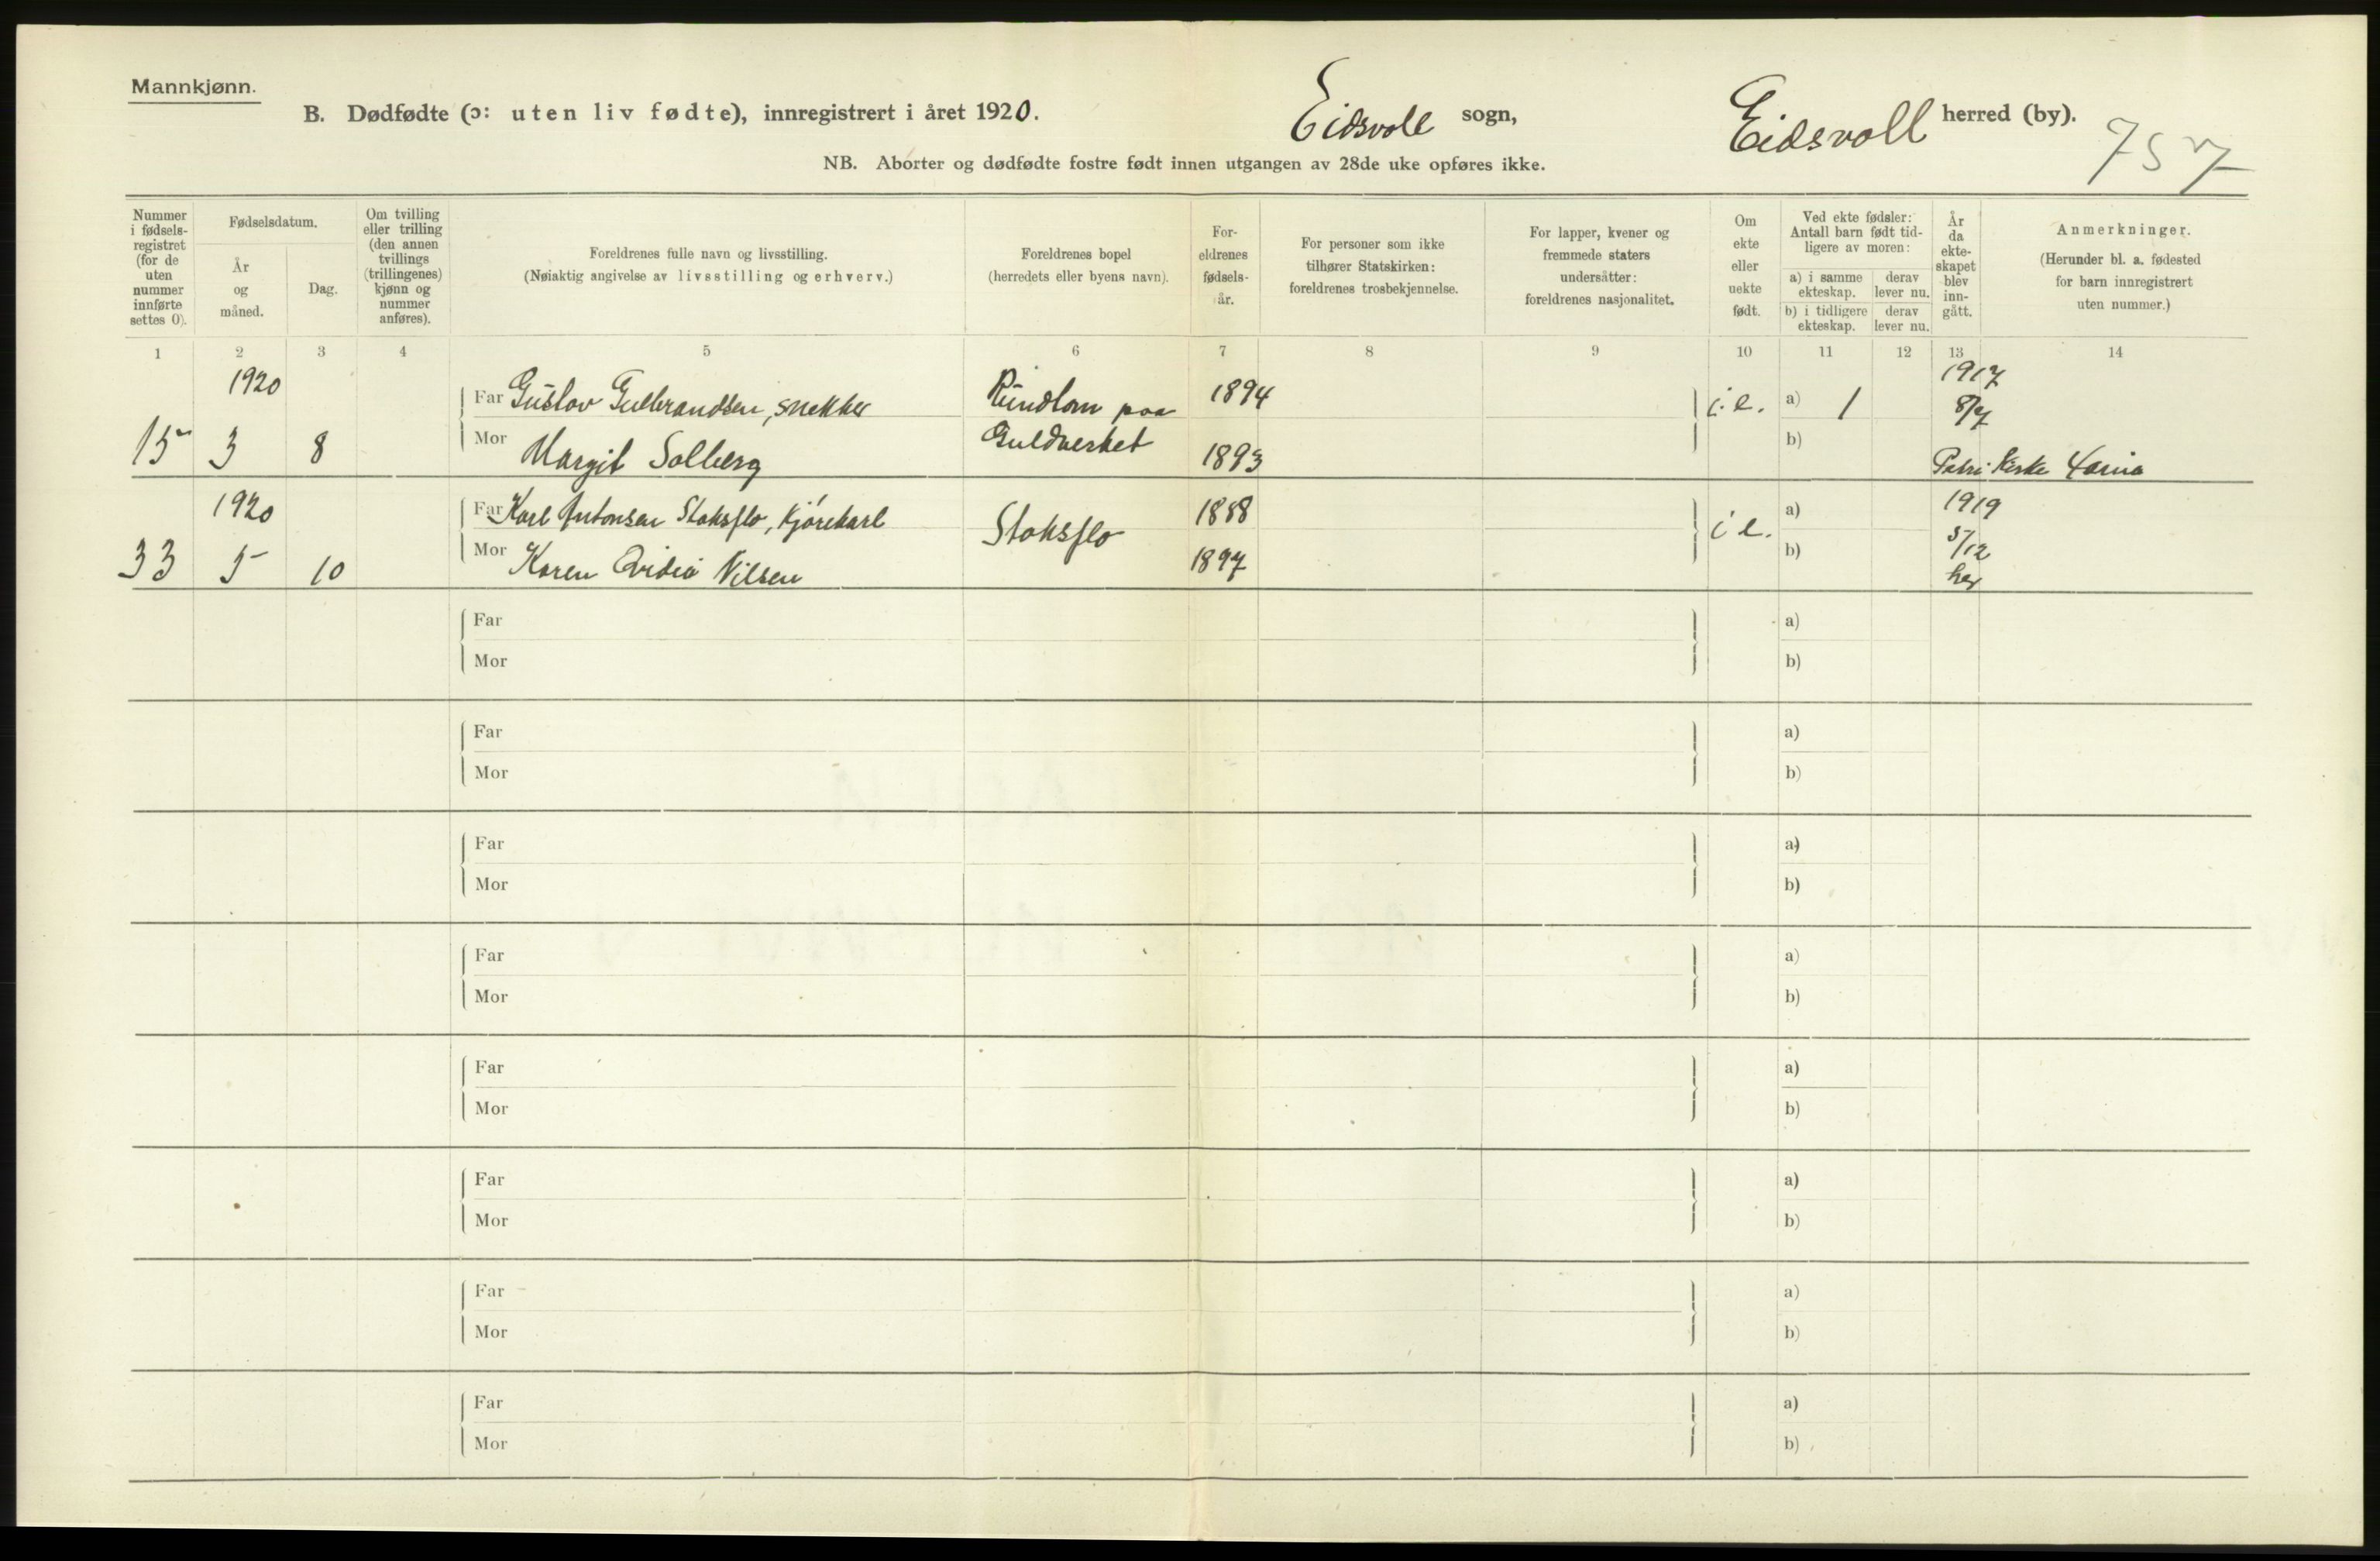 Mannkjønn.
B. Dødfødte (ɔ: uten liv fødte), innregistrert i året 1920.
Eidsvoll sogn,
Eidsvoll herred (by).
757
NB. Aborter og dødfødte fostre født innen utgangen av 28de uke opføres ikke.
Nummer
i fødsels-
registret
(for de
uten
nummer
innførte
settes 0).
Fødselsdatum.
År
og
måned.
Dag.
Om tvilling
eller trilling
(den annen
tvillings
(trillingenes)
kjønn og
nummer
anføres).
Foreldrenes fulle navn og livsstilling.
(Nøiaktig angivelse av livsstilling og erhverv.)
Foreldrenes bopel
(herredets eller byens navn).
For-
eldrenes
fødsels-
år.
For personer som ikke
tilhører Statskirken:
foreldrenes trosbekjennelse.
For lapper, kvener og
fremmede staters
undersåtter:
foreldrenes nasjonalitet.
Om
ekte
eller
uekte
født.
Ved ekte fødsler:
Antall barn født tid-
ligere av moren:
a) i samme
ekteskap.
derav
lever nu.
b) i tidligere
ekteskap.
derav
lever nu.
År
da
ekte-
skapet
blev
inn-
gått.
Anmerkninger.
(Herunder bl. a. fødested
for barn innregistrert
uten nummer.)
1 2 3 4 5 6 7 8 9 10 11 12 13 14
1920
15 3 8
Far Gustav Gulbrandsen, snekker
Mor Margit Solberg
paa
Guldverket
1894
1893
i e.
a) 1
b)
1917
8/7
Petri Kirke
1920
33 5 10
Far Karl Antonsen Stoksflo, kjørekarl
Mor Karen Nilsen
Stoksflo
1888
1897
i e.
a)
b)
1919
5/12
her
Far a)
Mor b)
Far a)
Mor b)
Far a)
Mor b)
Far a)
Mor b)
Far a)
Mor b)
Far a)
Mor b)
Far a)
Mor b)
Far a)
Mor b)